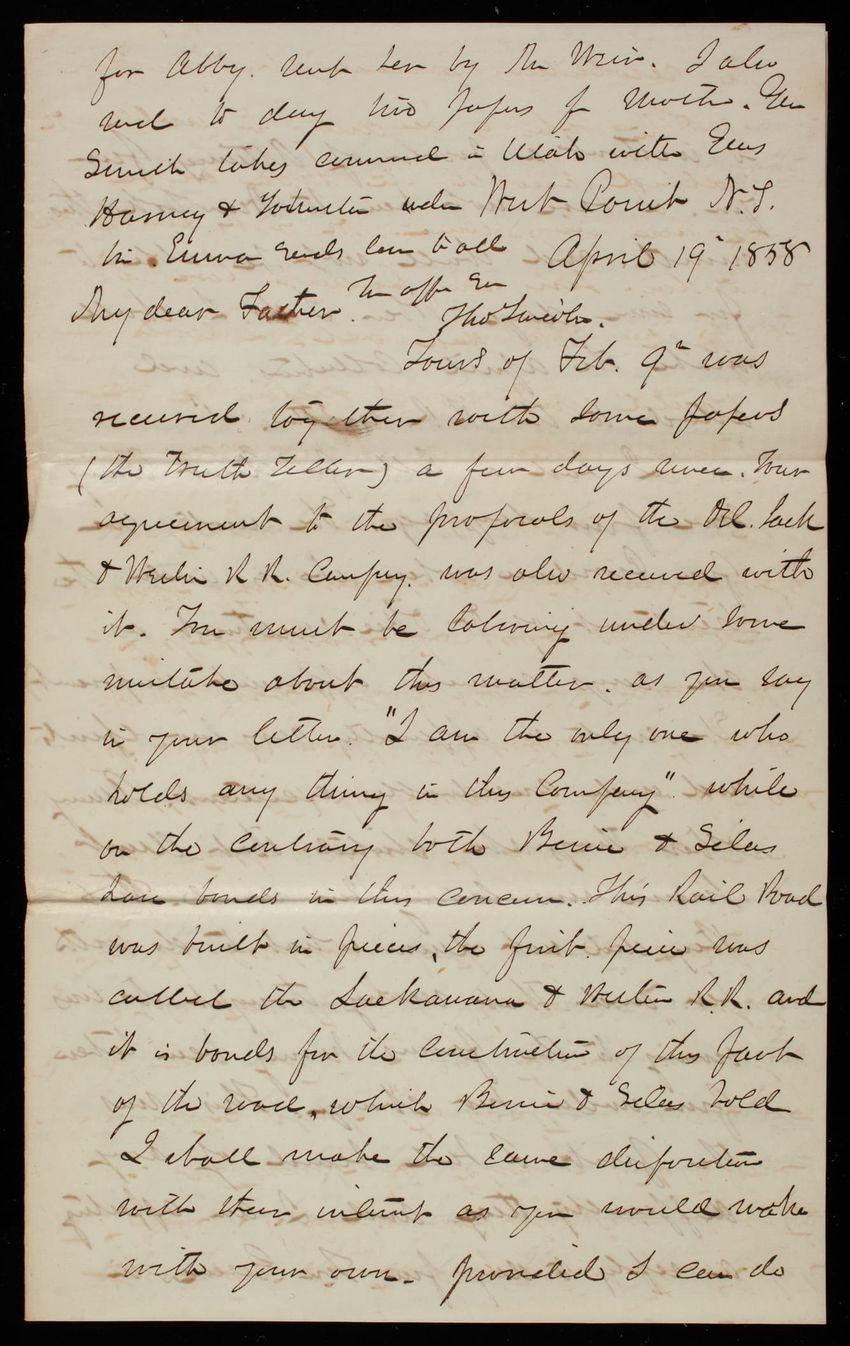 for Abby. sent her by Mr Weir. I also
recd to day two papers fr Mother. Gen
Smith takes command in Utah with Genls
Harney & Johnston under West Point N.Y.
him. Emma sends love to all April 19th 1858
My dear Father. Yr aff son
Tho Lincoln.
Yours of Feb. 9th was
received together with some papers
(the Truth Teller) a few days since. Your
agreement to the proposals of the Del. Lack
& Westn R R. Compny. was also received with
it. You must be laboring under some
mistake about this matter. as you say
in your letter. "I am the only one who
holds any thing in this Company" while
on the contrary both Bernie & Silas
have bonds in this concern. This Rail Road
was built in pieces, the first piece was
called the Lackawana & Western R.R. and
it is bonds for the construction of this part
of the road, which Bernie & Silas hold
I shall make the same disposition
with their interest as you would make
with your own. provided I can do